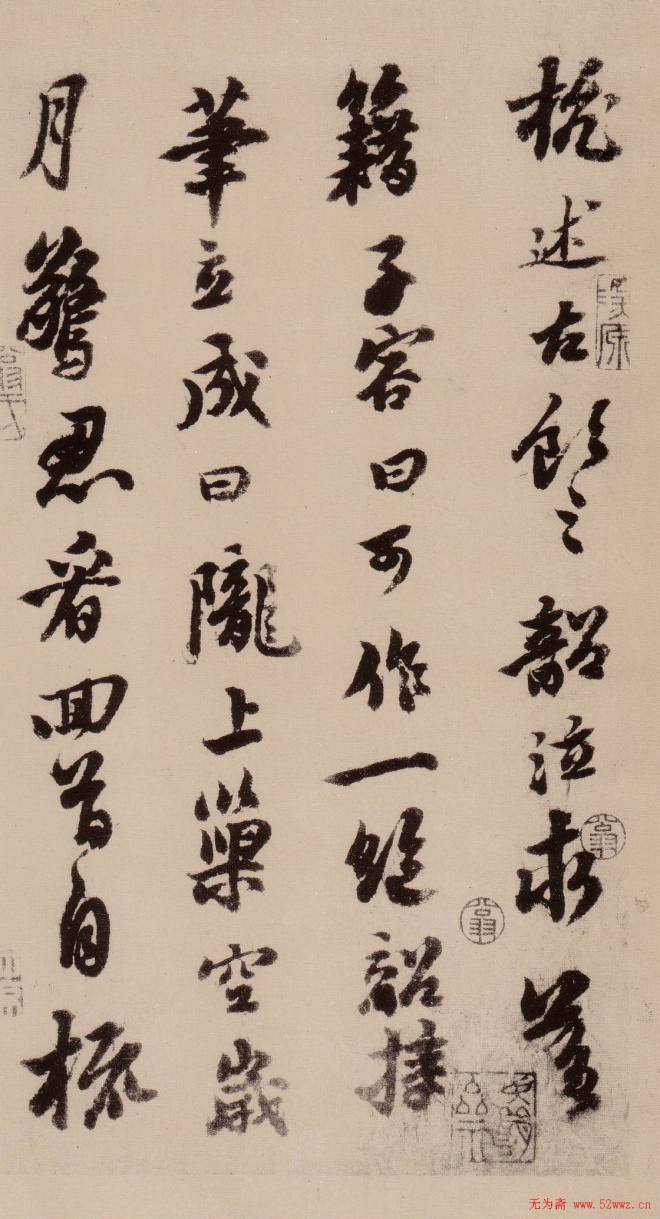 杭述古飲之韶泣求落
籍子容曰可作一絕韶援
筆立成曰隴上巢空歲
月驚忍看回首自梳
无为斋 www.52wwz.cn